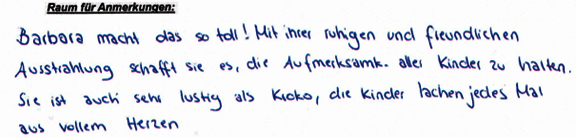 Raum für Anmerkungen:
Barbara macht das so toll! Mit ihrer ruhigen und freundlichen
Ausstrahlung schafft sie es, die Aufmerksamk. aller Kinder zu halten.
Sie ist auch sehr lustig als Kroko, die Kinder lachen jedes Mal
aus vollem Herzen